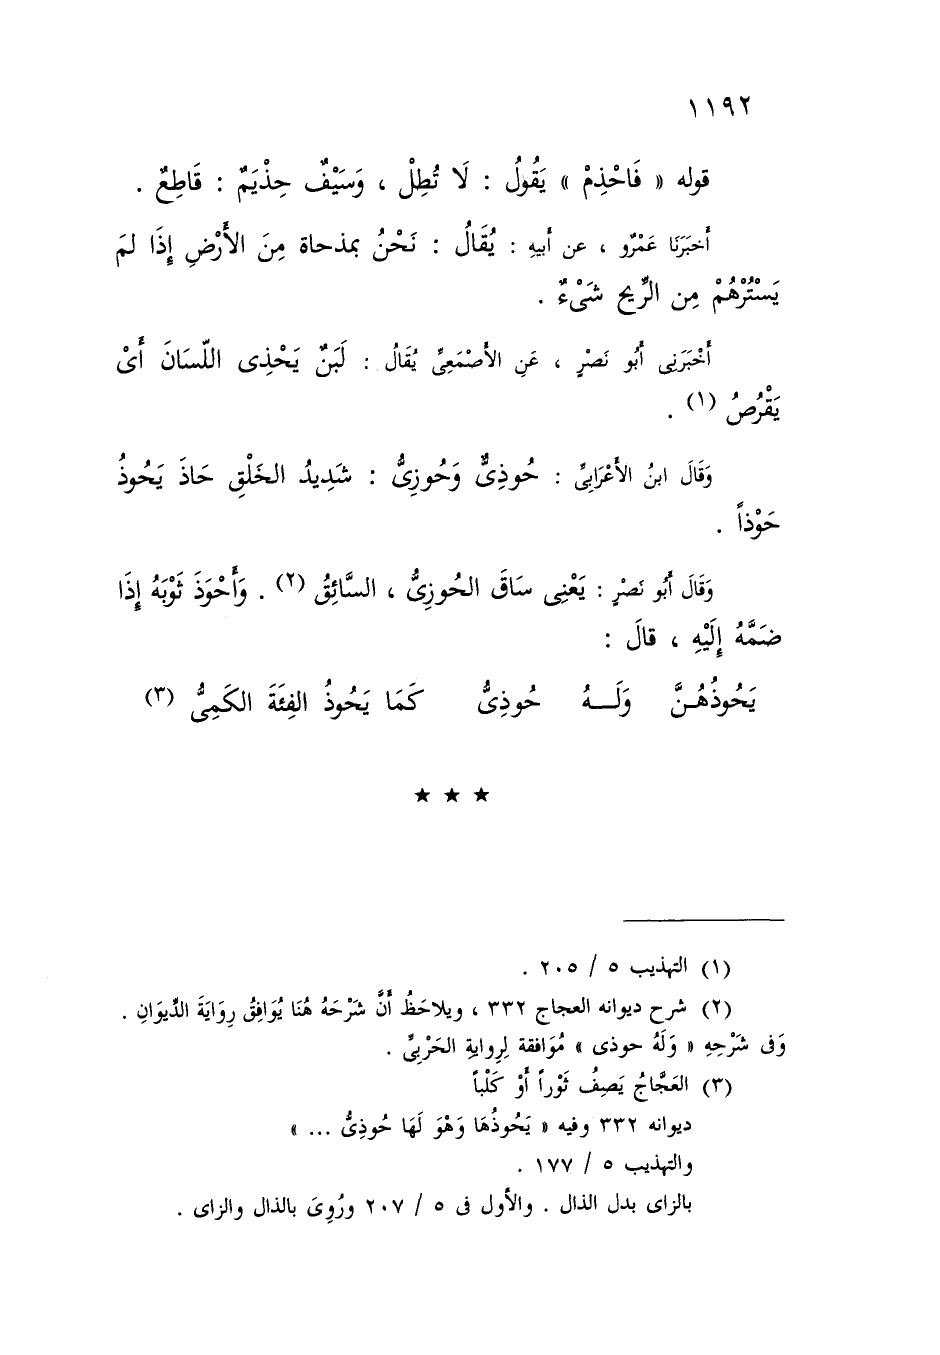 ١١٩٢
قوله « فَاحْذِمْ » يَقُولُ : لَا تُطِلْ ، وَسَيْفٌ حِذْيَمٌ : قَاطِعٌ .
أخبَرَنَا عَمْرٌو ، عن أبيهِ : يُقَالُ : نَحْنُ بمذحاة مِنَ الأَرْضِ إِذَا لمَ
يَسْتُرْهُمْ مِن الرِّيح شَىْءٌ .
أَخْبَرَنِى أَبُو نَصْرٍ ، عَنِ الأَصْمَعِىِّ يُقَالُ : لَبَنٌ يَحْذِى اللّسَانَ أَىْ
يَقْرُصُ (١) .
وَقَالَ ابنُ الأَعْرَابِىِّ : حُوذِىٌّ وَحُوزِىٌّ : شَدِيدُ الخَلْقِ حَاذَ يَحُوذُ
حَوْذاً .
وَقَالَ أَبُو نَصْرٍ : يَعْنِى سَاقَ الحُوزِىُّ ، السَّائِقُ (٢) . وَأَحْوَذَ ثَوْبَهُ إِذَا
ضَمَّهُ إِلَيْهِ ، قالَ :
يَحُوذُهُـنَّ وَلَـــهُ حُوذِىُّ كَمَا يَحُوذُ الفِئَةَ الكَمِىُّ (٣)
★ ★ ★
(١) التهذيب ٥ / ٢٠٥ .
(٢) شرح ديوانه العجاج ٣٣٢ ، ويلاحَظُ أَنَّ شَرْحَهُ هُنَا يُوَافِقُ رِوَايَةَ الدِّيوَانِ .
وَفى شَرْحِهِ « وَلَهُ حوذى » مُوَافقة لِروايةِ الحَرْبِىِّ .
(٣) العَجَّاجُ يَصِفُ ثَوْراً أَوْ كَلْباً
ديوانه ٣٣٢ وفيه « يَحُوذُهَا وَهْوَ لَهَا حُوذِىُّ ... »
والتهذيب ٥ / ١٧٧ .
بالزاى بدل الذال . والأول فى ٥ / ٢٠٧ ورُوِىَ بالذال والزاى .